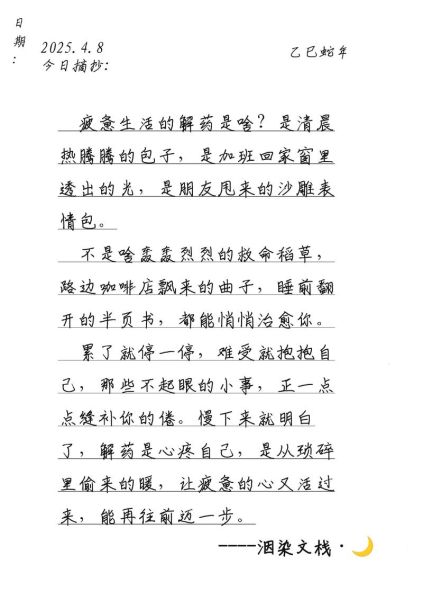 日期：
2025.4.8
乙巳蛇年
今日摘抄：
疲惫生活的解药是啥？是清晨
热腾腾的包子，是加班回家窗里
透出的光，是朋友甩来的沙雕表
情包。
不是啥轰轰烈烈的救命稻草，
路边咖啡店飘来的曲子，睡前翻
开的半页书，都能悄悄治愈你。
累了就停一停，难受就抱抱自
己，那些不起眼的小事，正一点
点缝补你的倦。慢下来就明白
了，解药是心疼自己，是从琐碎
里偷来的暖，让疲惫的心又活过
来，能再往前迈一步。
----洇染文栈·🌙